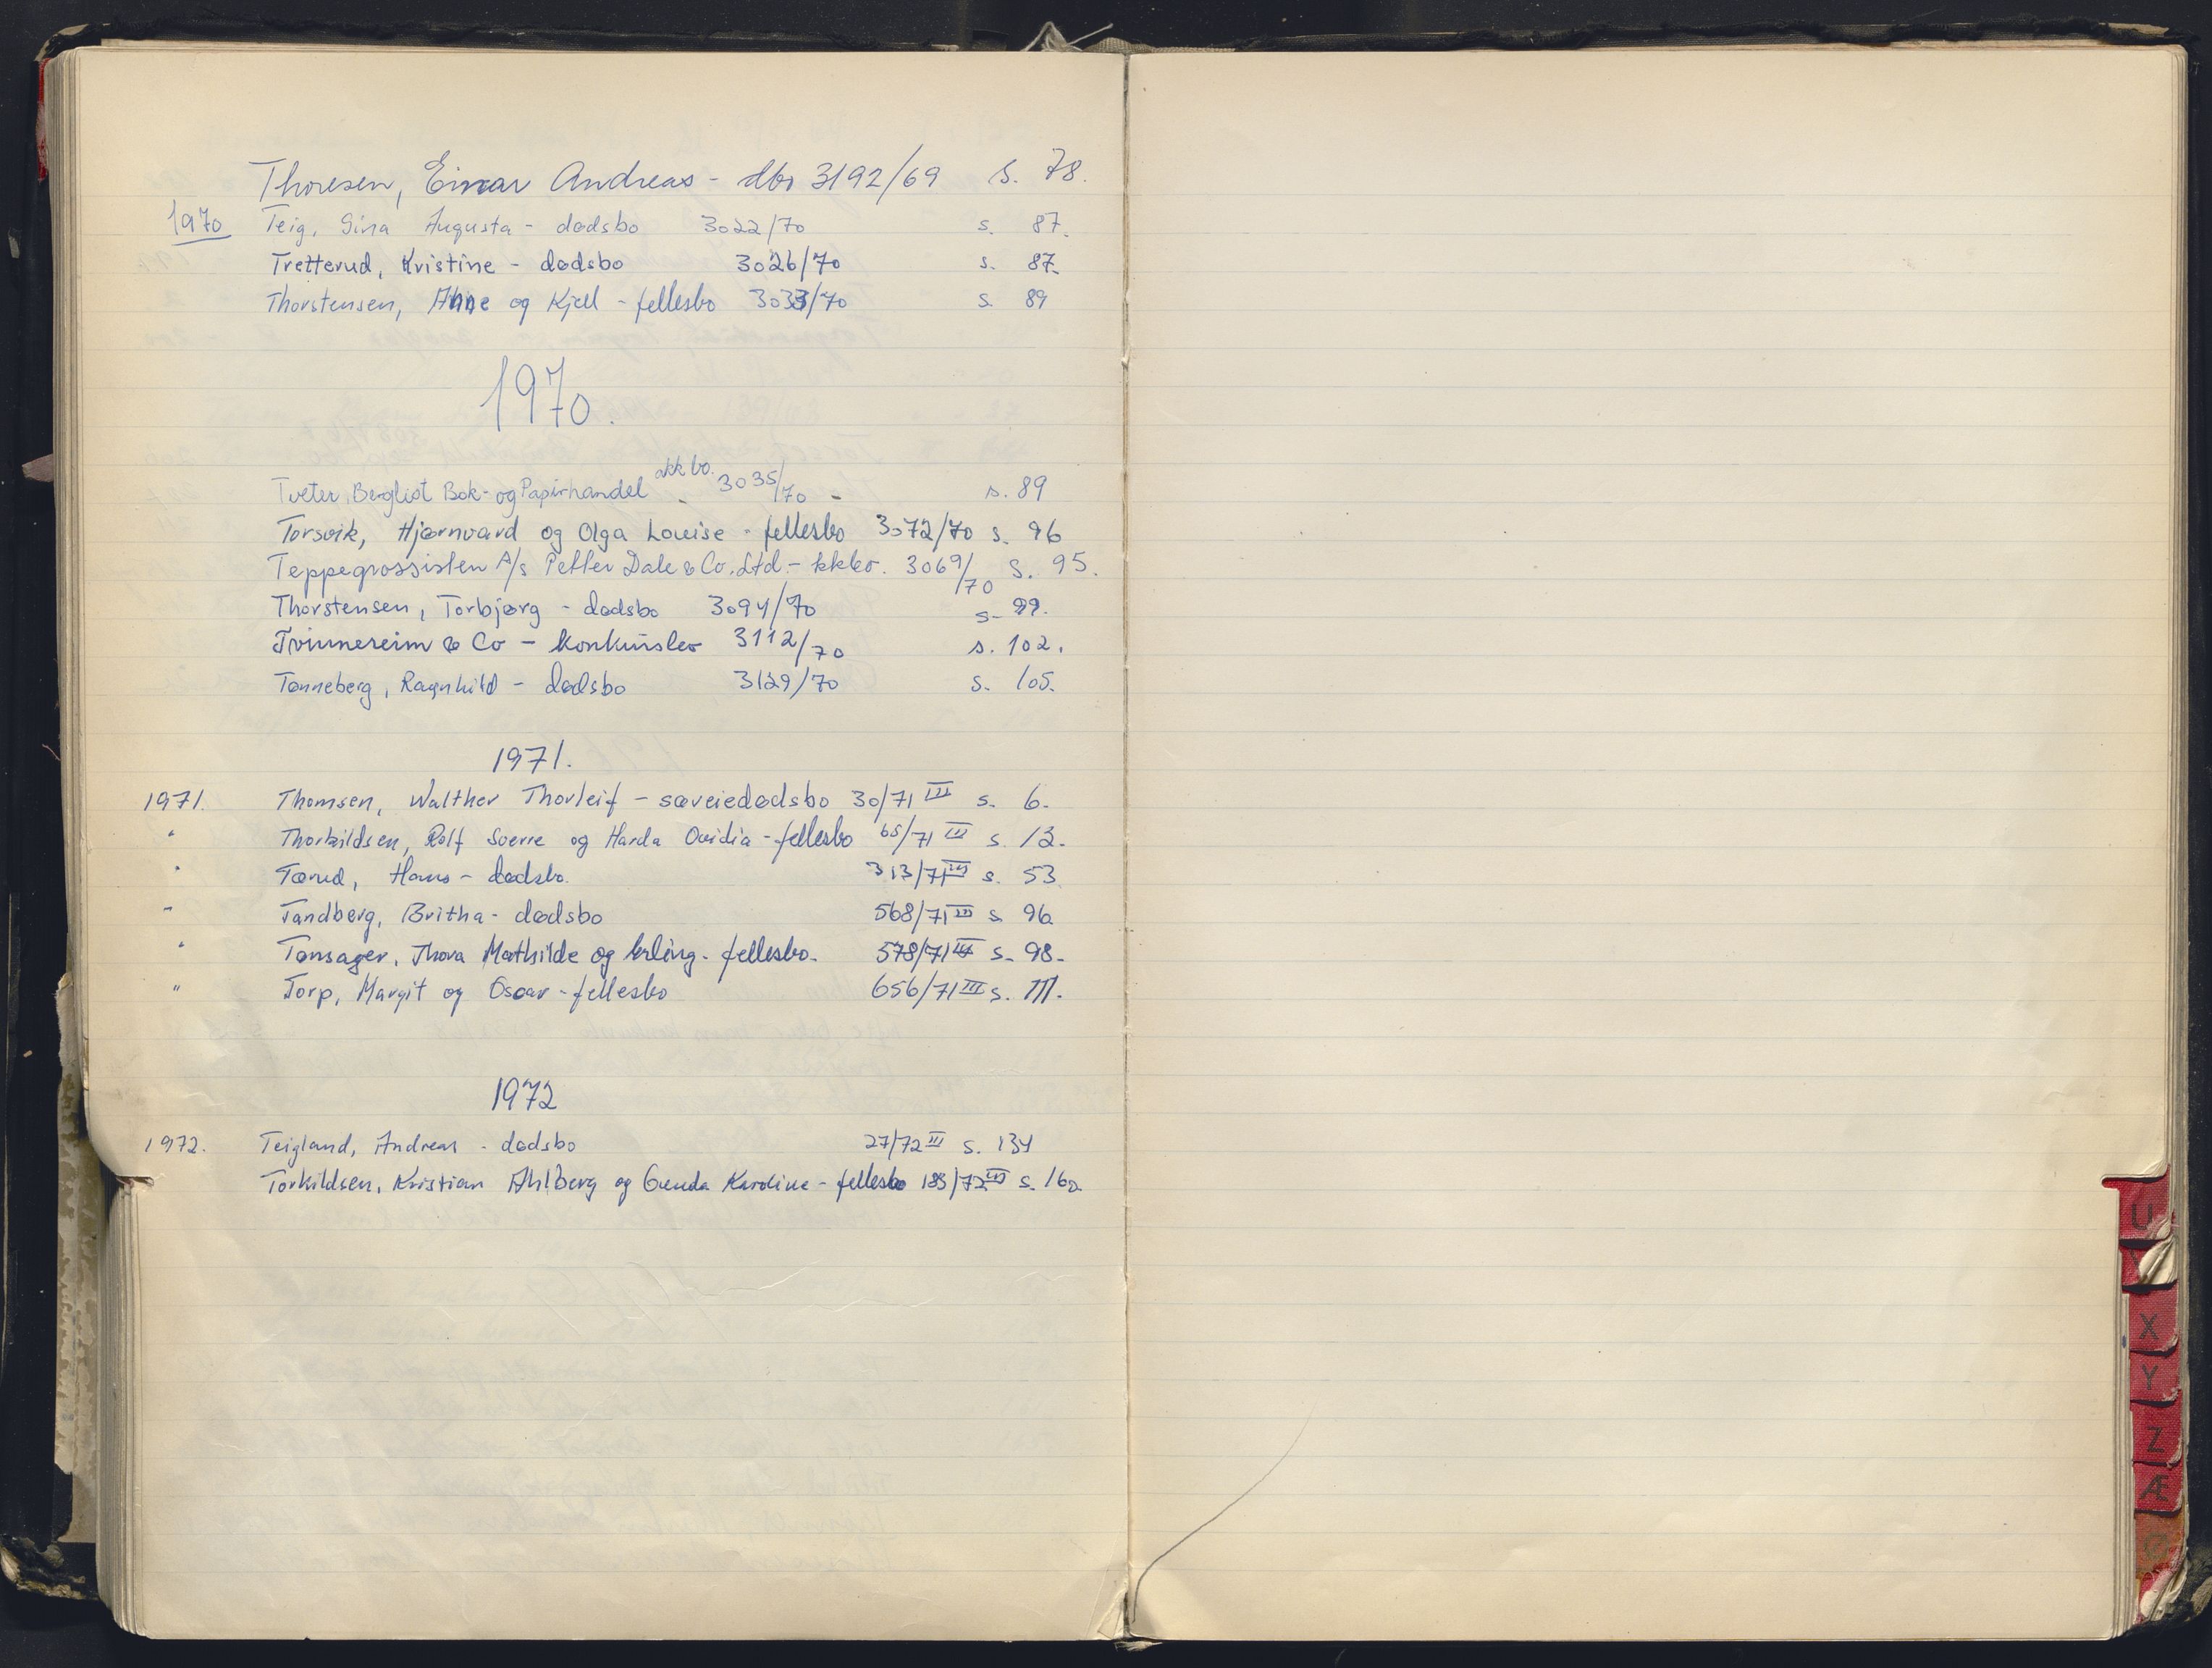 Thoresen, Einar Andreas - dbo 3192/69 s. 78.
1970 Teig, Gina Augusta - dødsbo 3022/70 s. 87.
Tretterud, Kristine - dødsbo 3026/70 s. 87.
Thorstensen, Anne og Kjell - fellesbo 3033/70 s. 89
1970.
Tveter, Bergliot Bok- og Papirhandel akkbo. - 3035/70 - s. 89
Torsvik, Hjørnvard og Olga Louise - fellesbo 3072/70 s. 96
Teppegrossisten A/s Petter Dale & Co. Ltd. - kkbo. 3069/70 s. 95.
Thorstensen, Torbjørg - dødsbo 3094/70 s. 99.
Tvinnereim & Co - konkursbo 3112/70 s. 102.
Tønneberg, Ragnhild - dødsbo 3129/70 s. 105.
1971.
1971. Thomsen, Walther Thorleif - særeiedødsbo 30/71 III s. 6.
" Thorkildsen, Rolf Sverre og Harda Ovidia - fellesbo 65/71 III s. 12.
" Tørud, Hans - dødsbo. 313/71 III s. 53
" Tandberg, Britha - dødsbo 568/71 III s. 96
" Tønsager, Thora Mathilde og Erling - fellesbo. 578/71 III s. 98.
" Torp, Margit og Oscar - fellesbo 656/71 III s. 111.
1972
1972. Teigland, Andreas - dødsbo 27/72 III s. 134
Torkildsen, Kristian Ahlberg og Gunda Karoline - fellesbo 183/72 III s. 160.
U
X
Y
Z
Æ
Ø